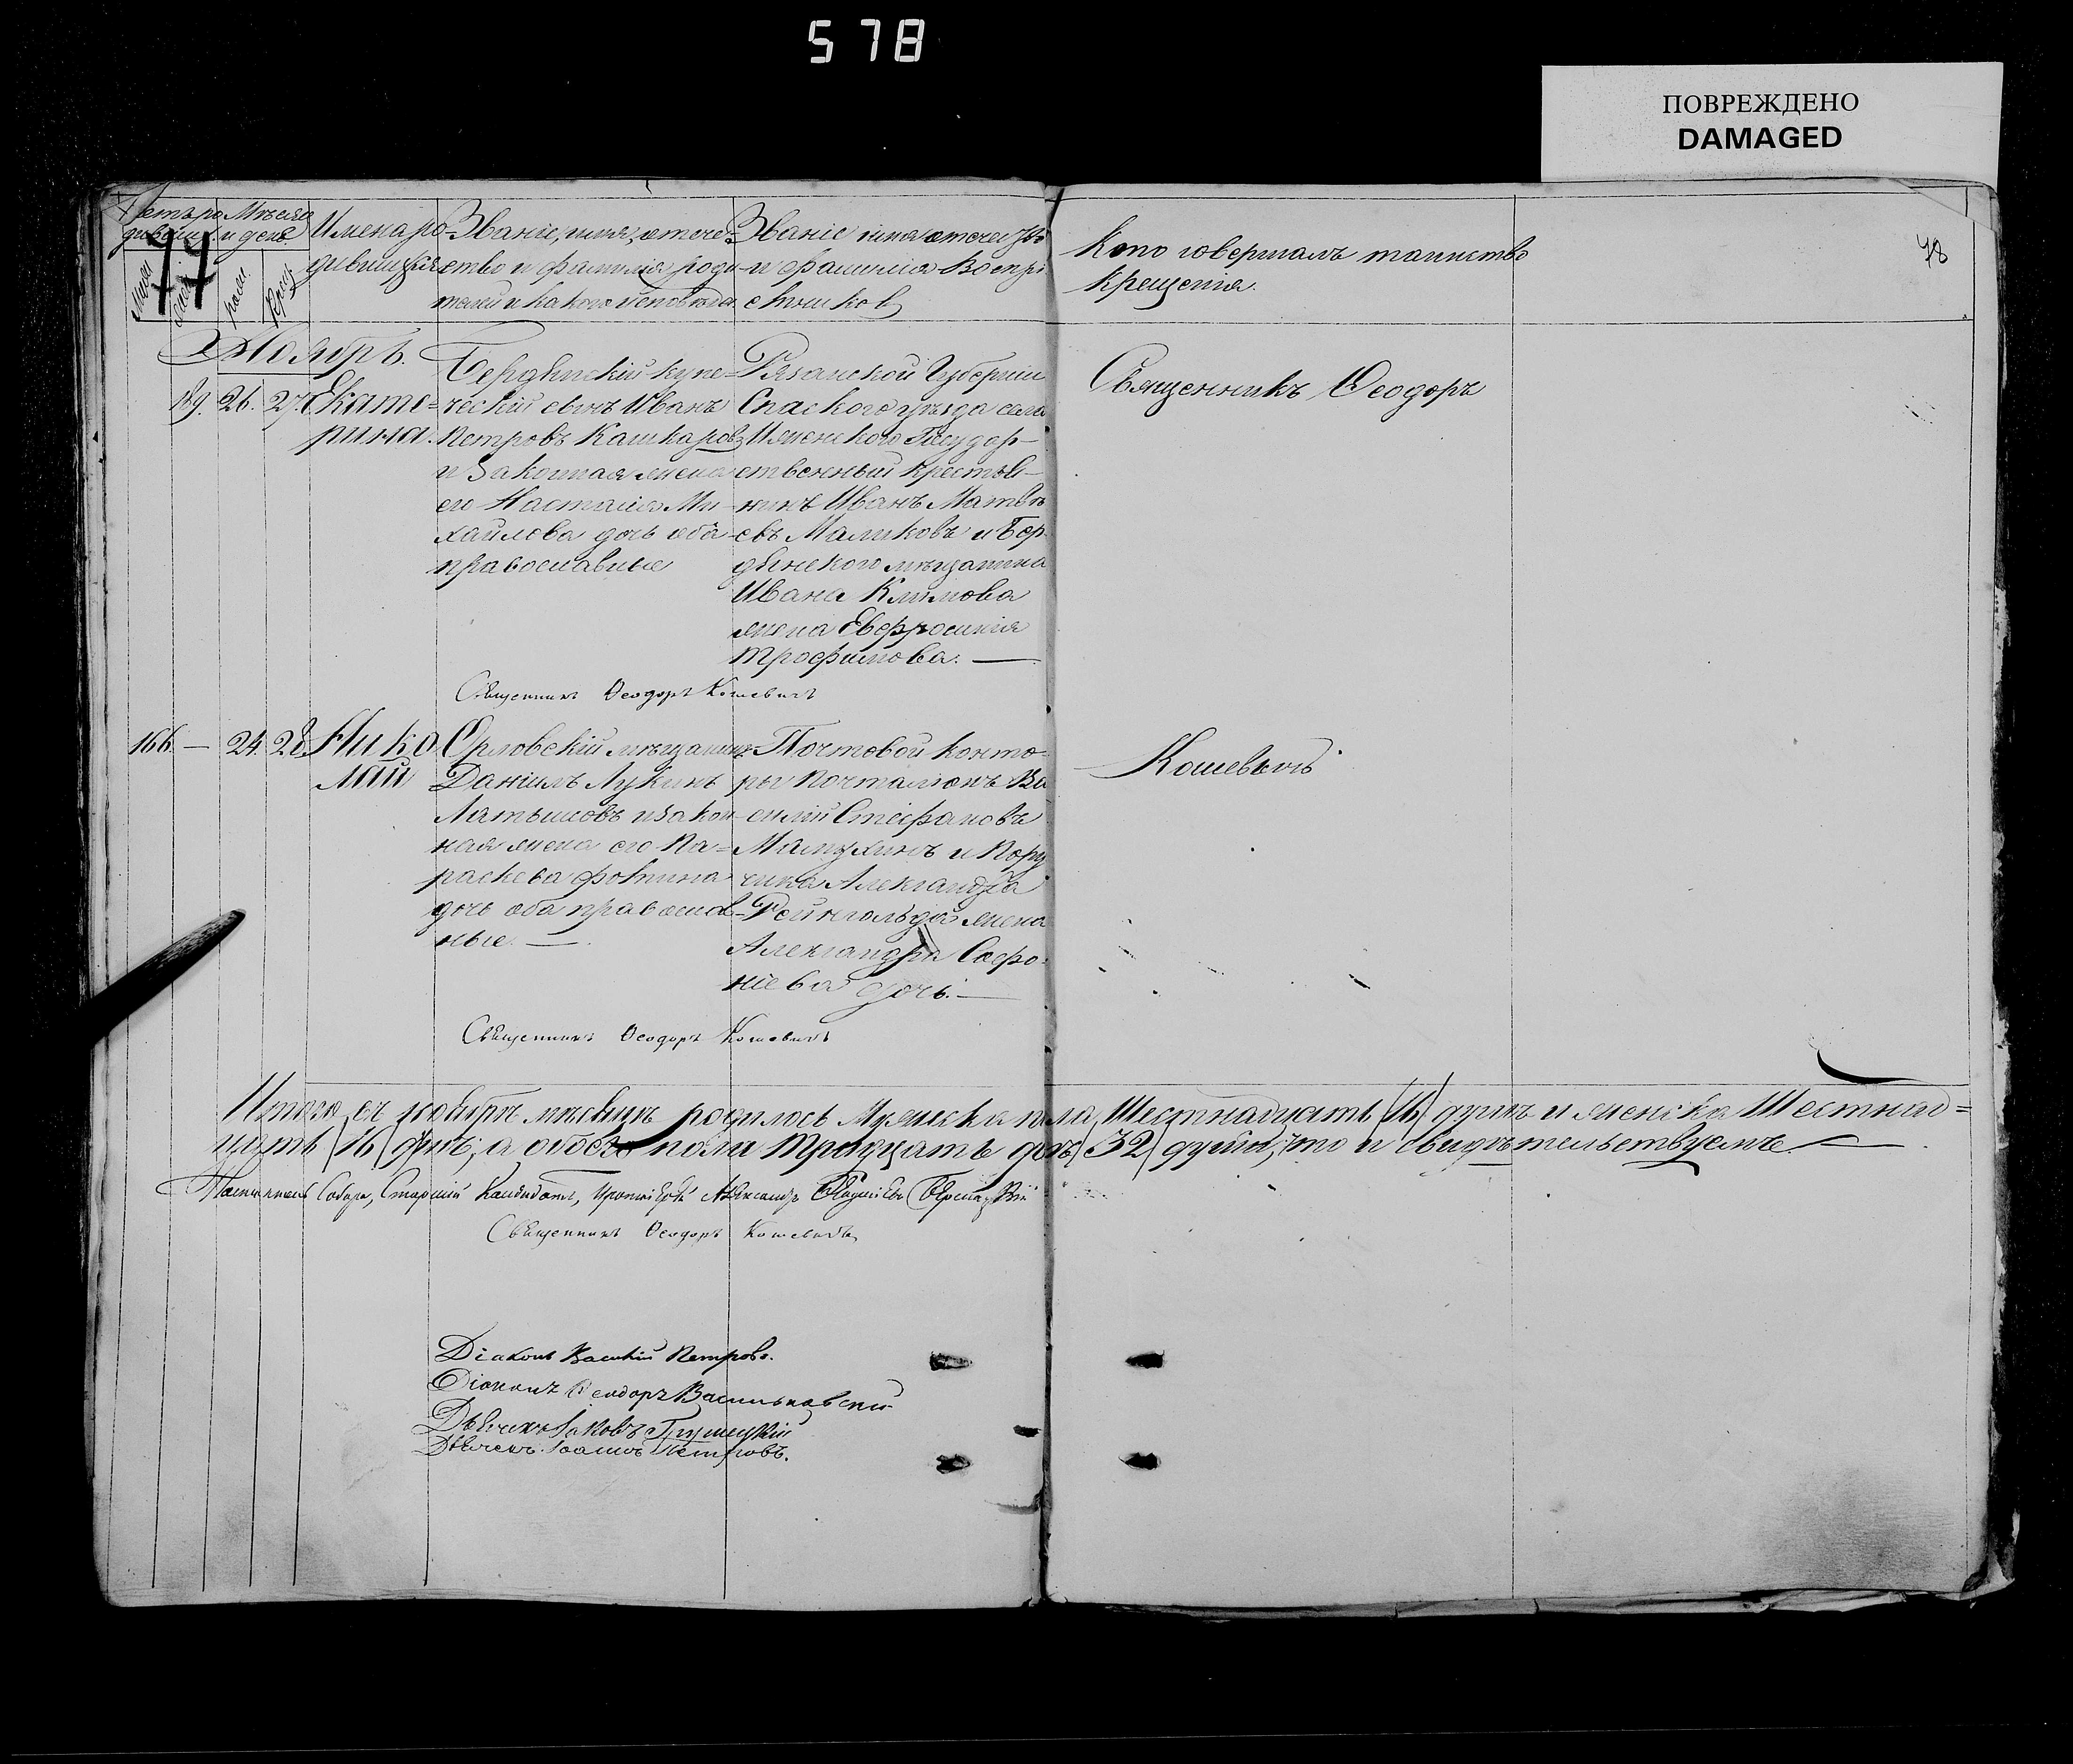 578
ПОВРЕЖДЕНО
DAMAGED
78
Имена ро-
дившихся
Званіе, имя, отече-
ство и фамилія роди-
телей и какого исповѣда
Званіе имя отечество
и фамилія Воспрі
емниковъ
Кто совершалъ таинство
Крещенія.
Ноябрь.
189. 26. 27. Екате-
рина.
Бердянскій купе-
ческій сынъ Иванъ
Петровъ Кашкаровъ
и Законная жена
его Настасія Ми-
хайлова дочь оба
православные
Рязанской Губерніи
Спаского уѣзда села
Ижевского Государ-
ственный крестья-
нинъ Иванъ Матвѣ
евъ Маликовъ и Бер-
дянского мѣщанина
Ивана Климова
жена Евфросинія
Трофимова. —
Священникъ Ѳеодоръ
Священникъ Ѳеодоръ Кошевичъ
166. — 24. 28. Нико
лай
Орловскій мѣщанинъ
Даніилъ Лукинъ
Лятышовъ и закон-
ная жена его Па-
раскева Фотина
дочь оба православ-
ные. —
Почтовой конто-
ры почталіонъ Ва
силій Стефановъ
Мамухинъ и Пору
чика Александра
Рейнгольда жена
Александра Софро-
ніева дочь. —
Кошевичъ
Священникъ Ѳеодоръ Кошевичъ
Итого въ ноябрѣ мѣсяцѣ родилось Мужеска пола Шестнадцать /16/ душъ и женска Шестнад=
цать /16/ душъ, а обоего пола Тридцать двѣ /32/ души, что и свидѣтельствуемъ. —
Настоятель Собора, Старшій Кандидатъ, Протоіерей Александръ
Священникъ Ѳеодоръ Кошевичъ
Діаконъ Василій Петровъ.
Діаконъ Ѳеодоръ Васильковскій
Дьячекъ Іаковъ
Дьячекъ Іоаннъ Петровъ.